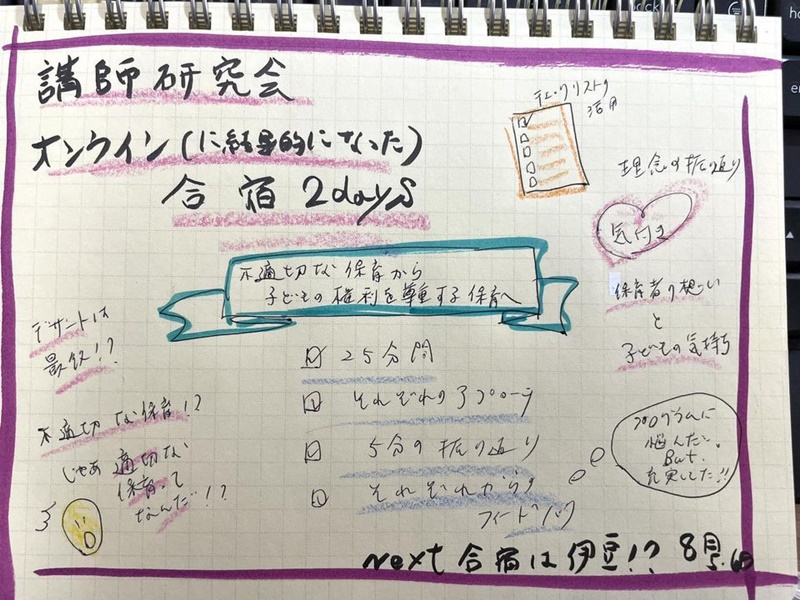 講師研究会
オンライン(に結果的になった)
合宿 2days
チェックリストの
活用
理念の振り返り
気付き
保育者の想い
と
子どもの気持ち
不適切な保育から
子どもの権利を尊重する保育へ
デザートは
最後!?
不適切な保育!?
じゃあ適切な
保育って
なんだ!?
25分間
それぞれのアプローチ
5分の振り返り
それぞれからの
フィードバック
プログラムに
悩んだ。
But.
充実してた!!
Next 合宿は伊豆!? 8月5.6日